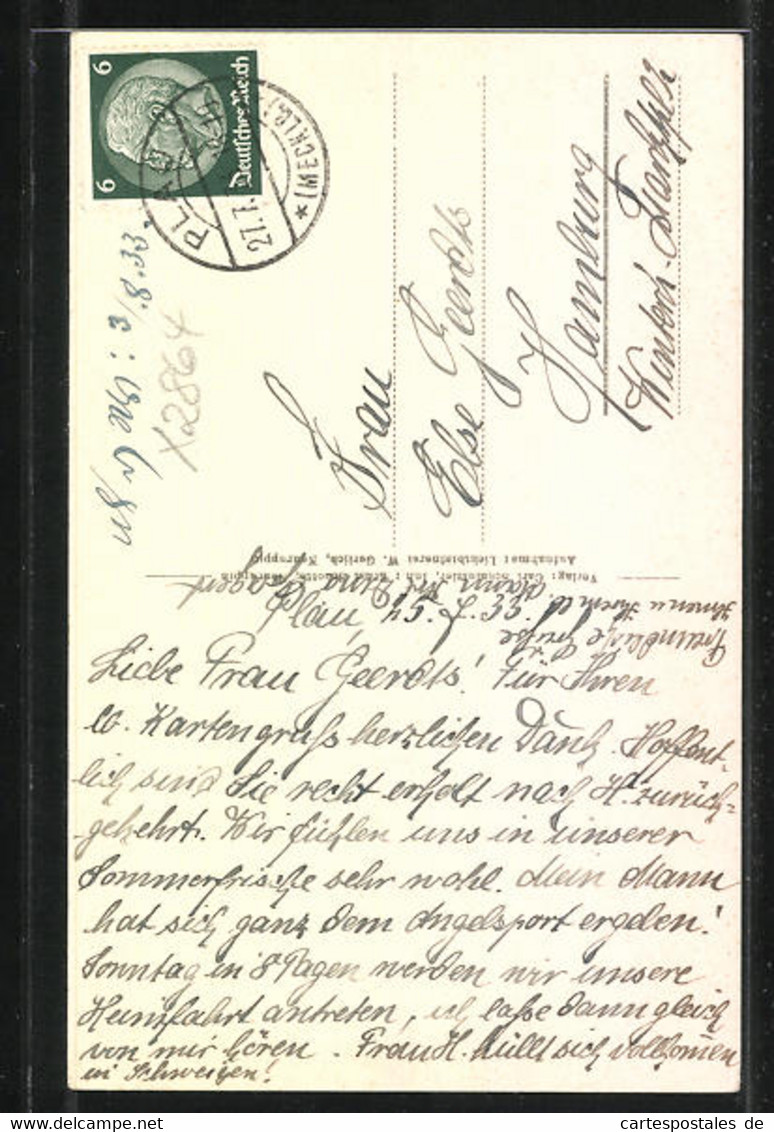 6 6
Deutsches Reich
PLAU
27.7.
* (MECKLB.)
3/8.33
X2864
Frau
Else Geerdts
Hamburg
Verlag: Carl
Aufnahme: Lichtbildnerei W. Gerlich, Neuruppin
Plau, 25.7.33.
Liebe Frau Geerdts! Für Ihren
lb. Kartengruß herzlichen Dank. Hoffent-
lich sind Sie recht erholt nach H. zurück-
gekehrt. Wir fühlen uns in unserer
Sommerfrische sehr wohl. Mein Mann
hat sich ganz dem Angelsport ergeben!
Sonntag in 8 Tagen werden wir unsere
Heimfahrt antreten, ich laße dann gleich
von mir hören. Frau H. hüllt sich vollkommen
in Schweigen!
Freundliche Grüße
Ihnen u. Ihrem lb. Mann Ihre
cartespostales de